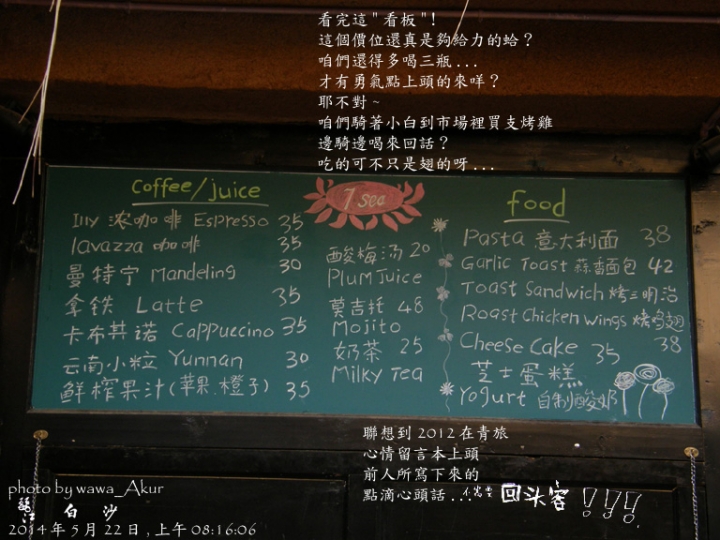 看完這"看板"!
這個價位還真是夠給力的蛤？
咱們還得多喝三瓶...
才有勇氣點上頭的來咩？
耶不對~
咱們騎著小白到市場裡買支烤雞
邊騎邊喝來回話？
吃的可不只是翅的呀...
Coffee/juice
Illy 浓咖啡 Espresso 35
lavazza 咖啡 35
曼特宁 Mandeling 30
拿铁 Latte 35
卡布其诺 Cappuccino 35
云南小粒 Yunnan 30
鲜榨果汁(苹果.橙子) 35
7 sea
酸梅汤 20
Plum Juice
莫吉托 48
Mojito
奶茶 25
Milky Tea
food
Pasta 意大利面 38
Garlic Toast 蒜香面包 42
Toast Sandwich 烤三明治
Roast Chicken Wings 烤鸡翅
38
Cheese Cake 35
芝士蛋糕
Yogurt 自制酸奶
聯想到2012在青旅
心情留言本上頭
前人所寫下來的
點滴心頭話...
回头客!!!
photo by wawa_Akur
白 沙
2014年5月22日,上午08:16:06